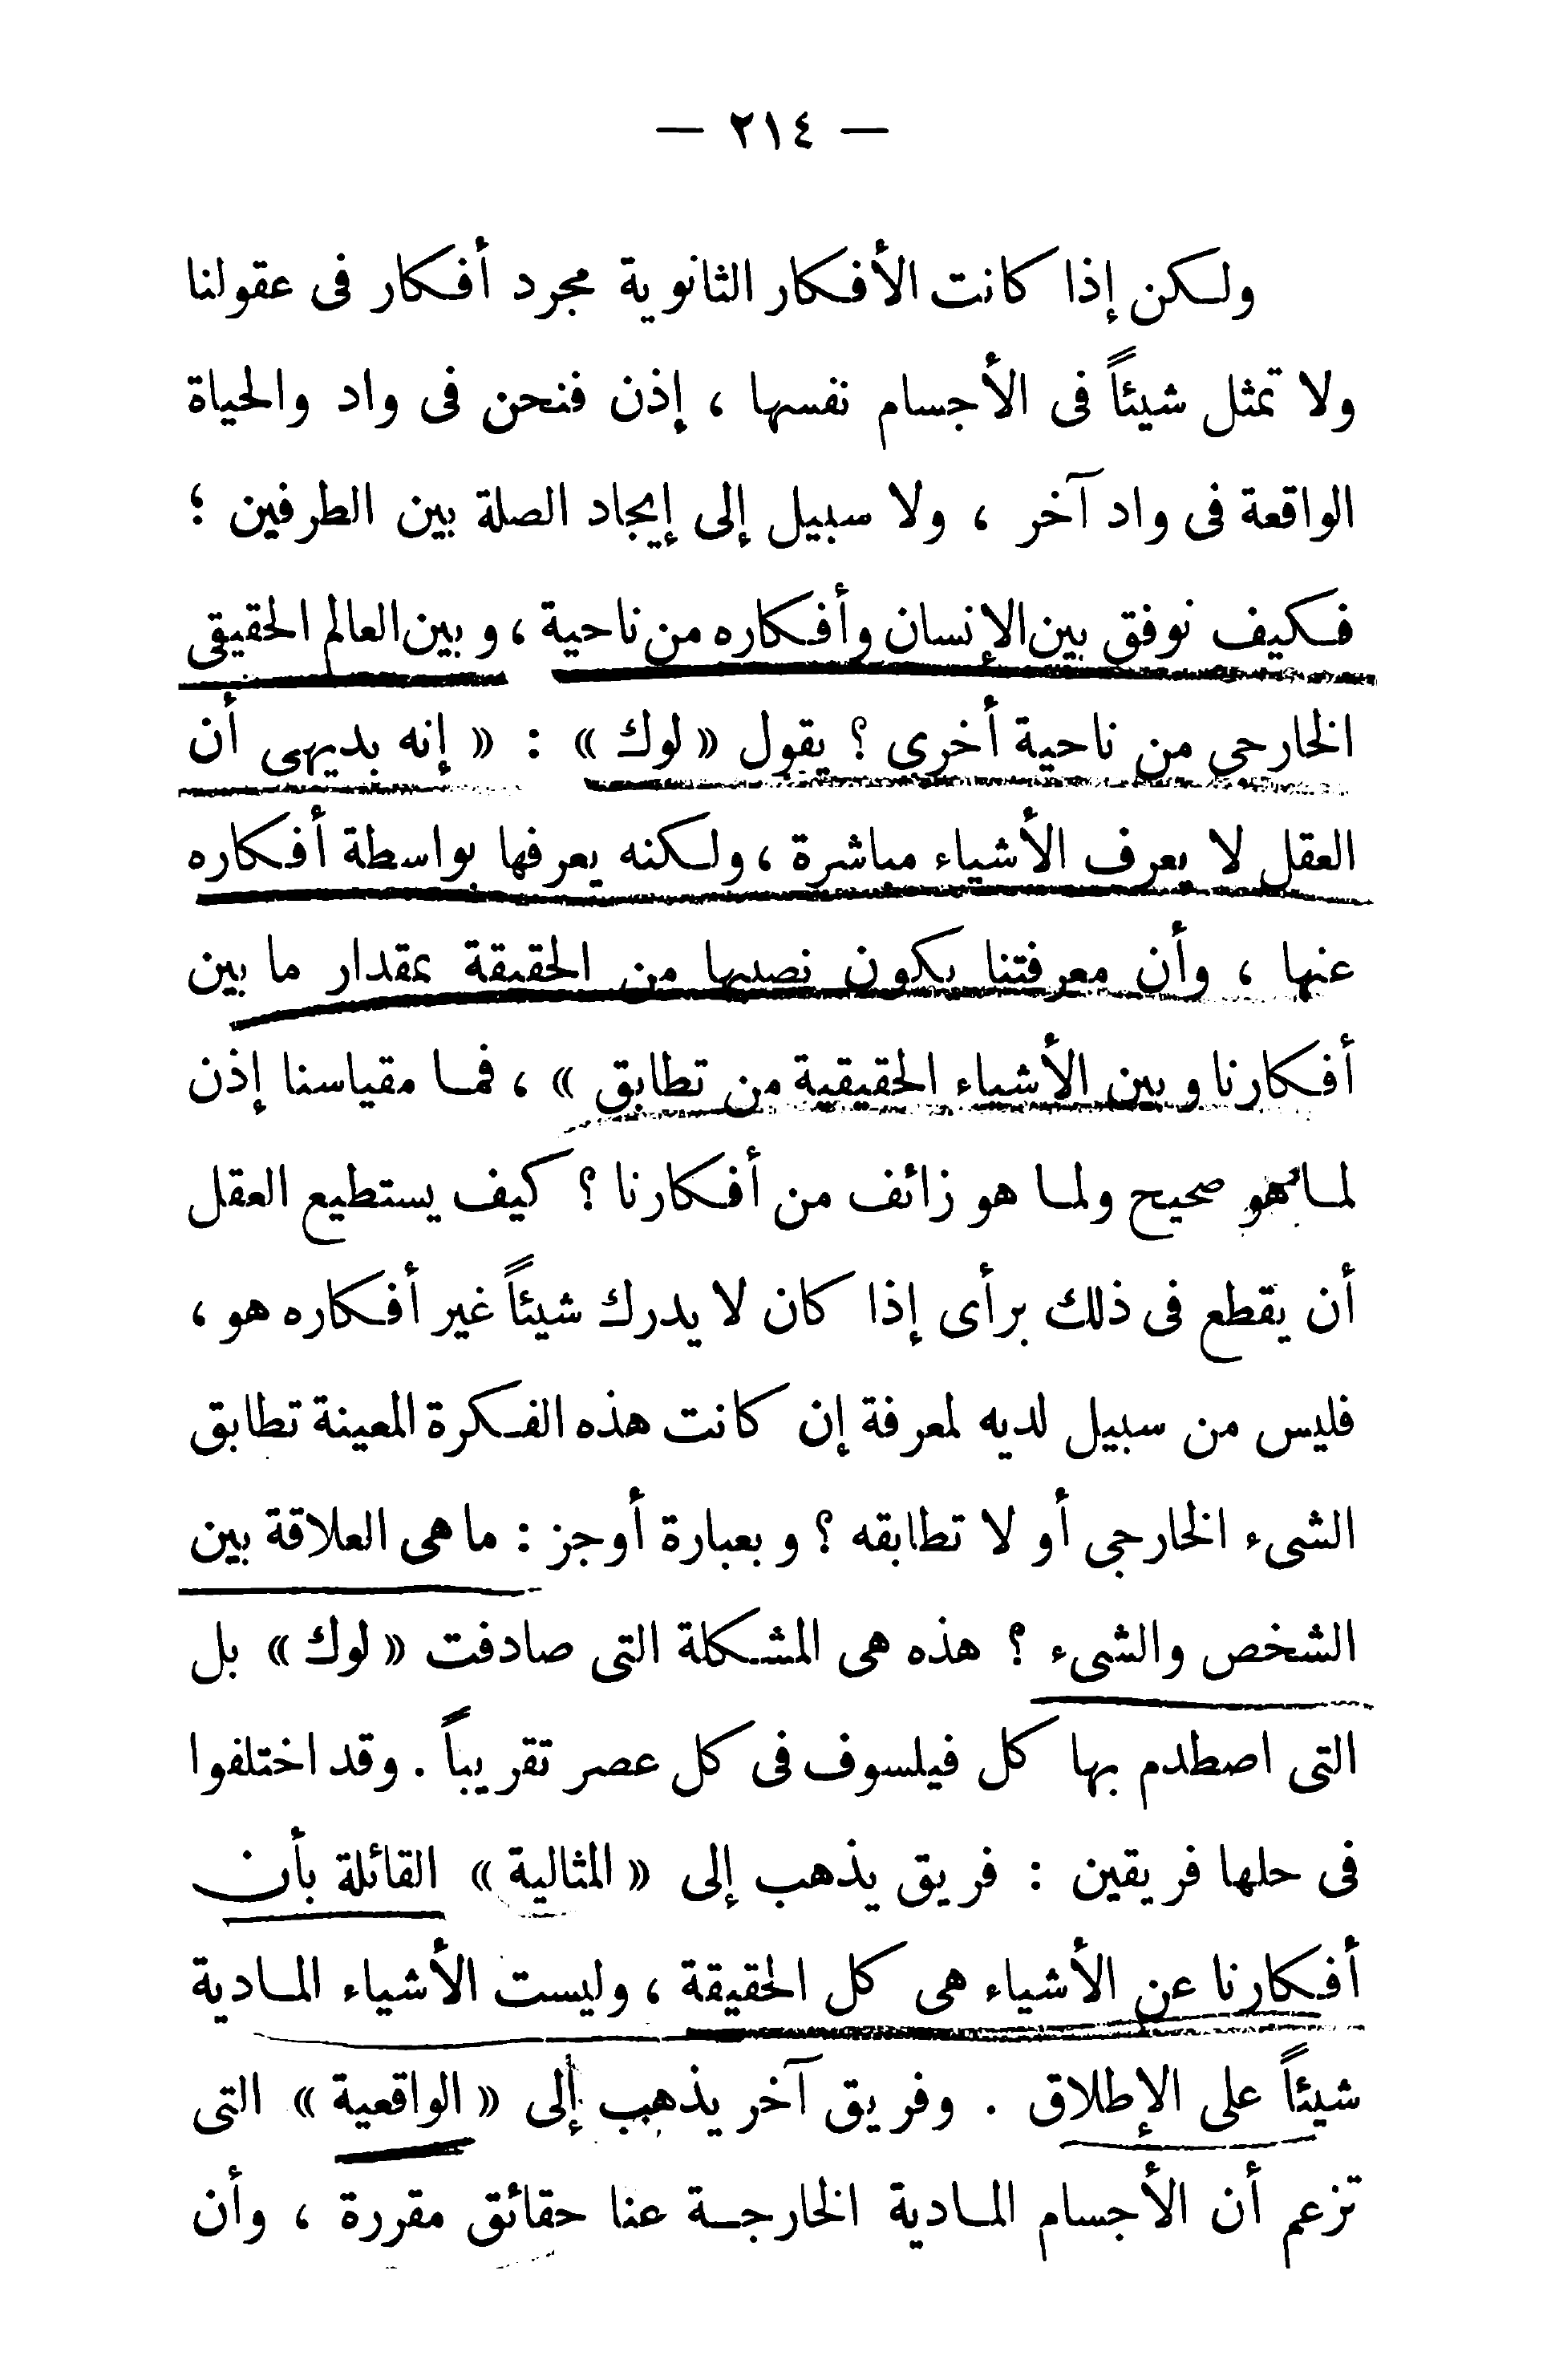 — ٢١٤ —
ولكن إذا كانت الأفكار الثانوية مجرد أفكار فى عقولنا
ولا تمثل شيئاً فى الأجسام نفسها ، إذن فنحن فى واد والحياة
الواقعة فى واد آخر ، ولا سبيل إلى إيجاد الصلة بين الطرفين ؛
فكيف نوفق بين الإنسان وأفكاره من ناحية ، وبين العالم الحقيقى
الخارجى من ناحية أخرى ؟ يقول « لوك » : « إنه بديهى أن
العقل لا يعرف الأشياء مباشرة ، ولكنه يعرفها بواسطة أفكاره
عنها ، وأن معرفتنا يكون نصيبها من الحقيقة بمقدار ما بين
أفكارنا وبين الأشياء الحقيقية من تطابق » ، فما مقياسنا إذن
لما هو صحيح ولما هو زائف من أفكارنا ؟ كيف يستطيع العقل
أن يقطع فى ذلك برأى إذا كان لا يدرك شيئاً غير أفكاره هو ،
فليس من سبيل لديه لمعرفة إن كانت هذه الفكرة المعينة تطابق
الشىء الخارجى أو لا تطابقه ؟ وبعبارة أوجز : ما هى العلاقة بين
الشخص والشىء ؟ هذه هى المشكلة التى صادفت « لوك » بل
التى اصطدم بها كل فيلسوف فى كل عصر تقريباً . وقد اختلفوا
فى حلها فريقين : فريق يذهب إلى « المثالية » القائلة بأن
أفكارنا عن الأشياء هى كل الحقيقة ، وليست الأشياء المادية
شيئاً على الإطلاق . وفريق آخر يذهب إلى « الواقعية » التى
تزعم أن الأجسام المادية الخارجة عنا حقائق مقررة ، وأن